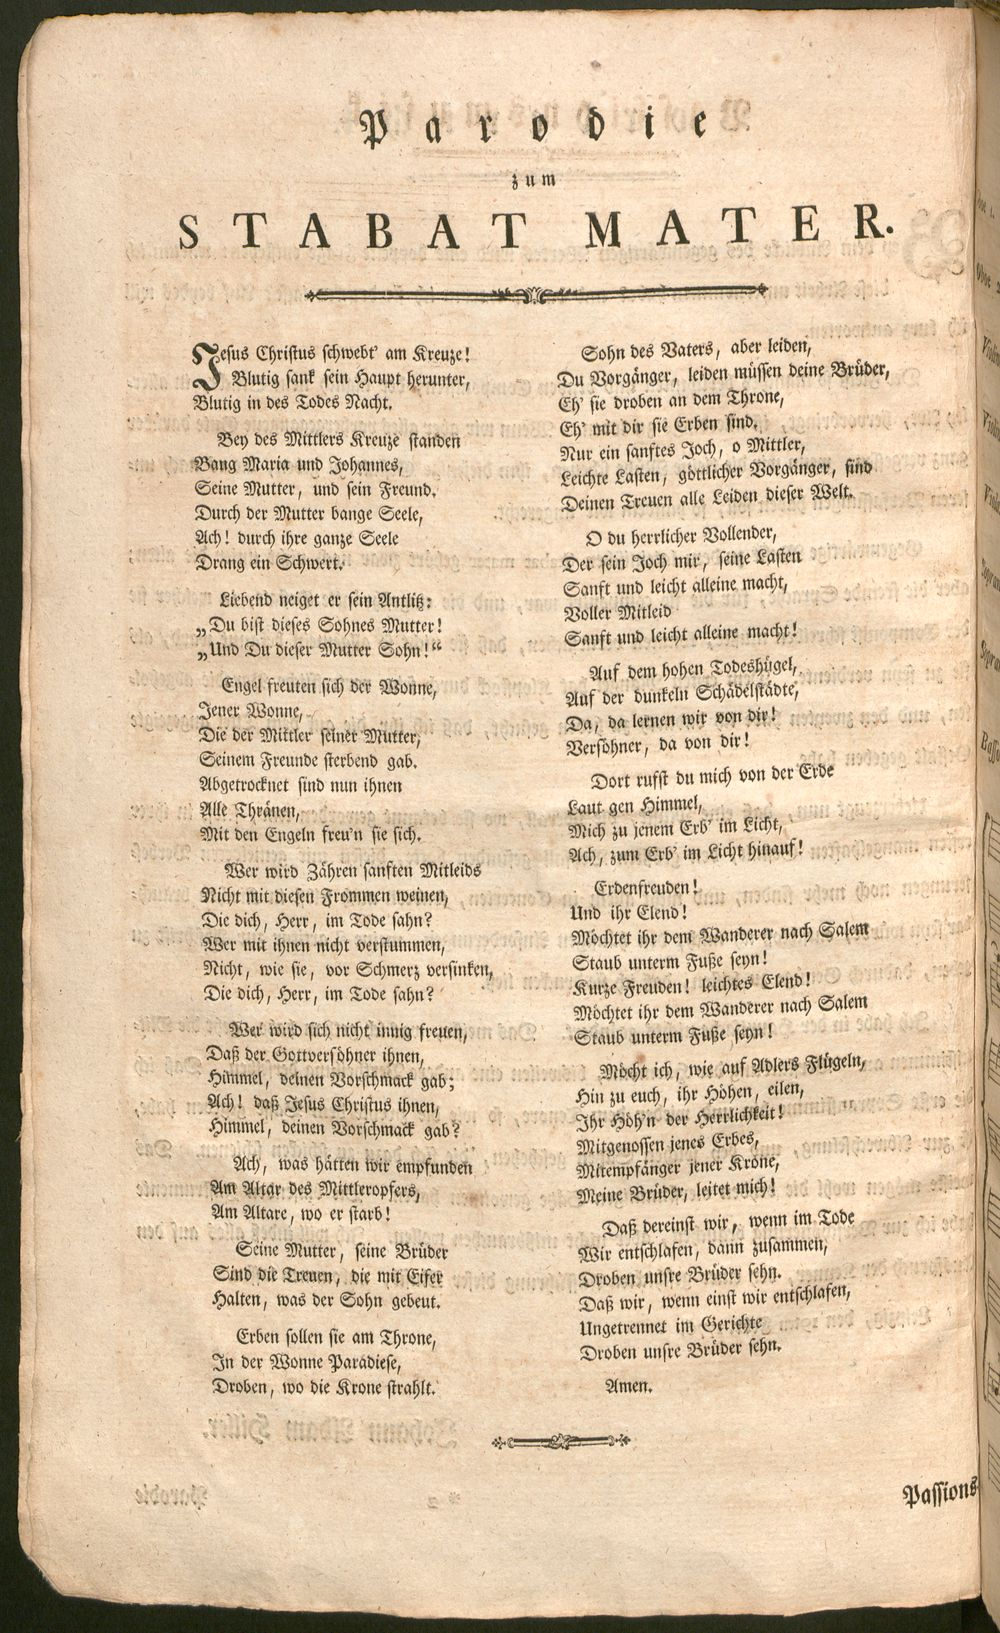 Parodie
zum
STABAT MATER.
Jesus Christus schwebt' am Kreuze!
Blutig sank sein Haupt herunter,
Blutig in des Todes Nacht.
Bey des Mittlers Kreuze standen
Bang Maria und Johannes,
Seine Mutter, und sein Freund.
Durch der Mutter bange Seele,
Ach! durch ihre ganze Seele
Drang ein Schwert.
Liebend neiget er sein Antlitz:
„Du bist dieses Sohnes Mutter!
„Und Du dieser Mutter Sohn!“
Engel freuten sich der Wonne,
Jener Wonne,
Die der Mittler seiner Mutter,
Seinem Freunde sterbend gab.
Abgetrocknet sind nun ihnen
Alle Thränen,
Mit den Engeln freu'n sie sich.
Wer wird Zähren sanften Mitleids
Nicht mit diesen Frommen weinen,
Die dich, Herr, im Tode sahn?
Wer mit ihnen nicht verstummen,
Nicht, wie sie, vor Schmerz versinken,
Die dich, Herr, im Tode sahn?
Wer wird sich nicht innig freuen,
Daß der Gottversöhner ihnen,
Himmel, deinen Vorschmack gab;
Ach! daß Jesus Christus ihnen,
Himmel, deinen Vorschmack gab?
Ach, was hätten wir empfunden
Am Altar des Mittleropfers,
Am Altare, wo er starb!
Seine Mutter, seine Brüder
Sind die Treuen, die mit Eifer
Halten, was der Sohn gebeut.
Erben sollen sie am Throne,
In der Wonne Paradiese,
Droben, wo die Krone strahlt.
Sohn des Vaters, aber leiden,
Du Vorgänger, leiden müssen deine Brüder,
Eh' sie droben an dem Throne,
Eh' mit dir sie Erben sind.
Nur ein sanftes Joch, o Mittler,
Leichte Lasten, göttlicher Vorgänger, sind
Deinen Treuen alle Leiden dieser Welt.
O du herrlicher Vollender,
Der sein Joch mir, seine Lasten
Sanft und leicht alleine macht,
Voller Mitleid
Sanft und leicht alleine macht!
Auf dem hohen Todeshügel,
Auf der dunkeln Schädelstädte,
Da, da lernen wir von dir!
Versöhner, da von dir!
Dort rufst du mich von der Erde
Laut gen Himmel,
Mich zu jenem Erb' im Licht,
Ach, zum Erb' im Licht hinauf!
Erdenfreuden!
Und ihr Elend!
Möchtet ihr dem Wanderer nach Salem
Staub unterm Fuße seyn!
Kurze Freuden! leichtes Elend!
Möchtet ihr dem Wanderer nach Salem
Staub unterm Fuße seyn!
Möcht ich, wie auf Adlers Flügeln,
Hin zu euch, ihr Höhen, eilen,
Ihr Höh'n der Herrlichkeit!
Mitgenossen jenes Erbes,
Mitempfänger jener Krone,
Meine Brüder, leitet mich!
Daß dereinst wir, wenn im Tode
Wir entschlafen, dann zusammen,
Droben unsre Brüder sehn.
Daß wir, wenn einst wir entschlafen,
Ungetrennet im Gerichte
Droben unsre Brüder sehn.
Amen.
Passions